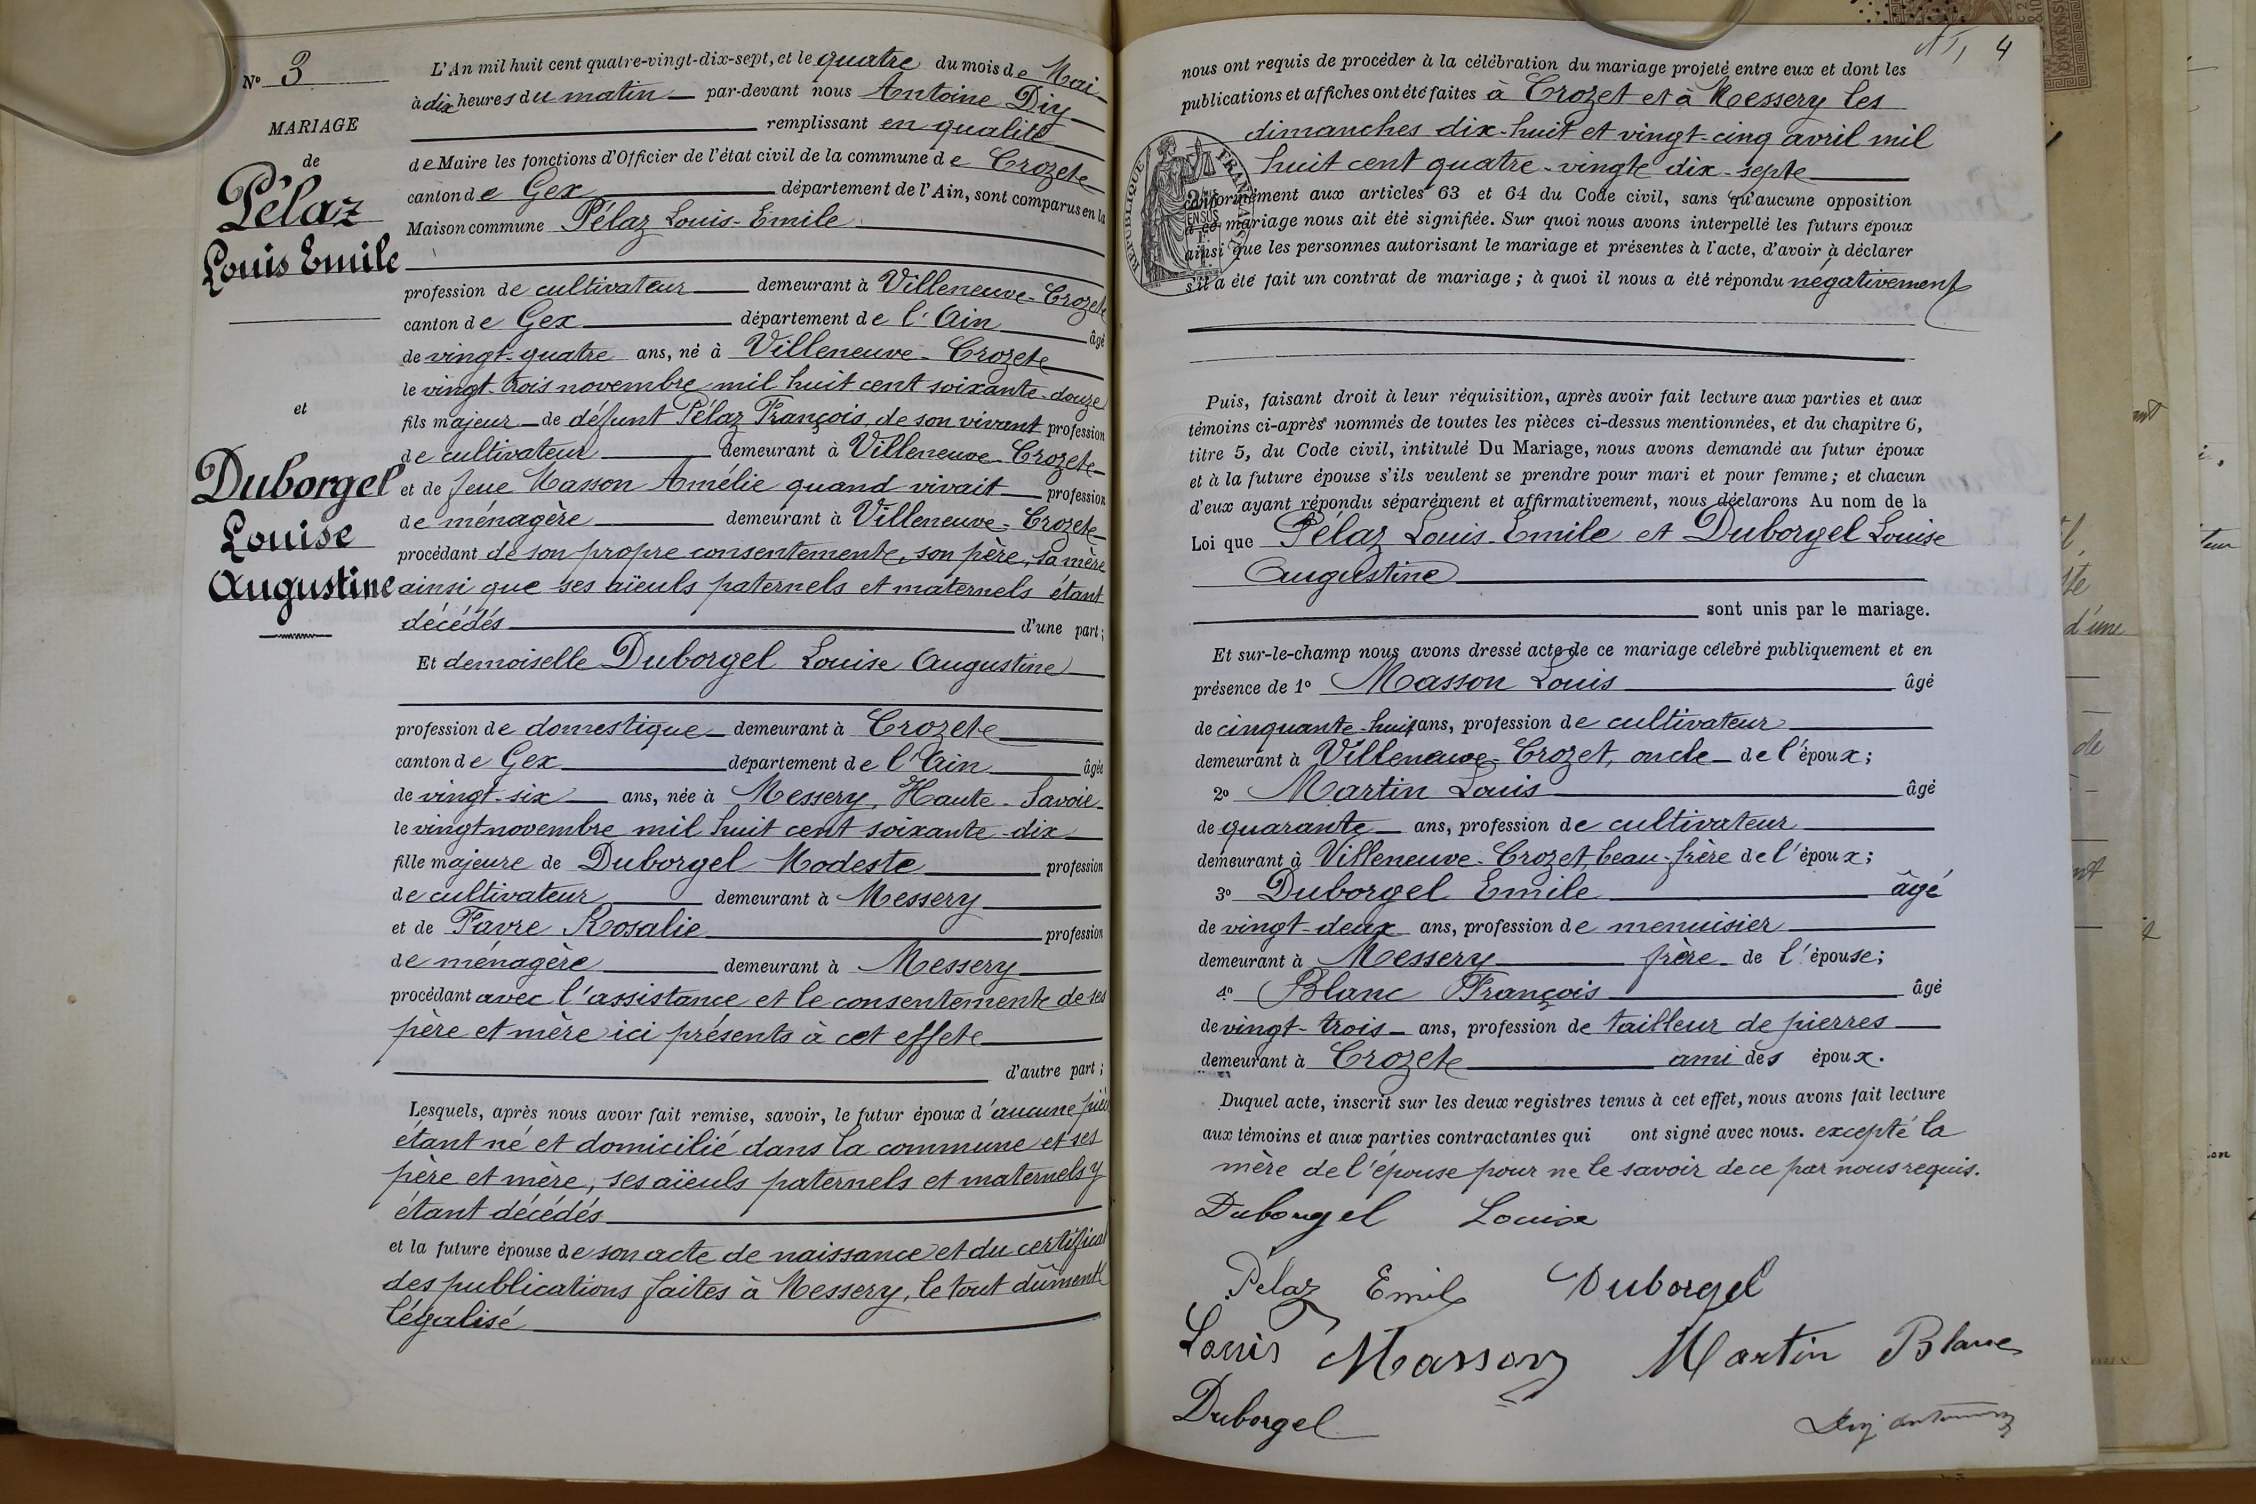 N° 3
MARIAGE
de
Pélaz
Louis Emile
et
Duborgel
Louise
Augustine
L'An mil huit cent quatre-vingt-dix-sept, et le quatre du mois de Mai
à dix heures du matin par-devant nous Antoine Diy
remplissant en qualité
de Maire les fonctions d'Officier de l'état civil de la commune de Crozet
canton de Gex département de l'Ain, sont comparus en la
Maison commune Pélaz Louis-Emile
profession de cultivateur demeurant à Villeneuve-Crozet
canton de Gex département de l'Ain âgé
de vingt-quatre ans, né à Villeneuve-Crozet
le vingt-trois novembre mil huit cent soixante-douze
fils majeur de défunt Pélaz François, de son vivant profession
de cultivateur demeurant à Villeneuve-Crozet
et de feue Masson Amélie quand vivait profession
de ménagère demeurant à Villeneuve-Crozet
procédant de son propre consentement, son père, sa mère
ainsi que ses aïeuls paternels et maternels étant
décédés d'une part;
Et demoiselle Duborgel Louise Augustine
profession de domestique demeurant à Crozet
canton de Gex département de l'Ain âgée
de vingt-six ans, née à Messery, Haute-Savoie
le vingt novembre mil huit cent soixante-dix
fille majeure de Duborgel Modeste profession
de cultivateur demeurant à Messery
et de Favre Rosalie profession
de ménagère demeurant à Messery
procédant avec l'assistance et le consentement de ses
père et mère ici présents à cet effet
d'autre part;
Lesquels, après nous avoir fait remise, savoir, le futur époux d'aucune pièce
étant né et domicilié dans la commune et ses
père et mère, ses aïeuls paternels et maternels y
étant décédés
et la future épouse de son acte de naissance et du certificat
des publications faites à Messery, le tout dûment
légalisé
4
nous ont requis de procéder à la célébration du mariage projeté entre eux et dont les
publications et affiches ont été faites à Crozet et à Messery les
dimanches dix-huit et vingt-cinq avril mil
huit cent quatre-vingt dix-sept
conformément aux articles 63 et 64 du Code civil, sans qu'aucune opposition
à ce mariage nous ait été signifiée. Sur quoi nous avons interpellé les futurs époux
ainsi que les personnes autorisant le mariage et présentes à l'acte, d'avoir à déclarer
s'il a été fait un contrat de mariage; à quoi il nous a été répondu négativement
RÉPUBLIQUE FRANÇAISE
Puis, faisant droit à leur réquisition, après avoir fait lecture aux parties et aux
témoins ci-après nommés de toutes les pièces ci-dessus mentionnées, et du chapitre 6,
titre 5, du Code civil, intitulé Du Mariage, nous avons demandé au futur époux
et à la future épouse s'ils veulent se prendre pour mari et pour femme; et chacun
d'eux ayant répondu séparément et affirmativement, nous déclarons Au nom de la
Loi que Pélaz Louis-Emile et Duborgel Louise
Augustine
sont unis par le mariage.
Et sur-le-champ nous avons dressé acte de ce mariage célébré publiquement et en
présence de 1° Masson Louis âgé
de cinquante-huit ans, profession de cultivateur
demeurant à Villeneuve-Crozet, oncle de l'époux;
2° Martin Louis âgé
de quarante ans, profession de cultivateur
demeurant à Villeneuve-Crozet, beau-frère de l'époux;
3° Duborgel Emile âgé
de vingt-deux ans, profession de menuisier
demeurant à Messery frère de l'épouse;
4° Blanc François âgé
de vingt-trois ans, profession de tailleur de pierres
demeurant à Crozet ami des époux.
Duquel acte, inscrit sur les deux registres tenus à cet effet, nous avons fait lecture
aux témoins et aux parties contractantes qui ont signé avec nous. excepté la
mère de l'épouse pour ne le savoir de ce par nous requis.
Duborgel Louise
Pélaz Emile Duborgel
Louis Masson Martin Blanc
Duborgel Diy Antoine